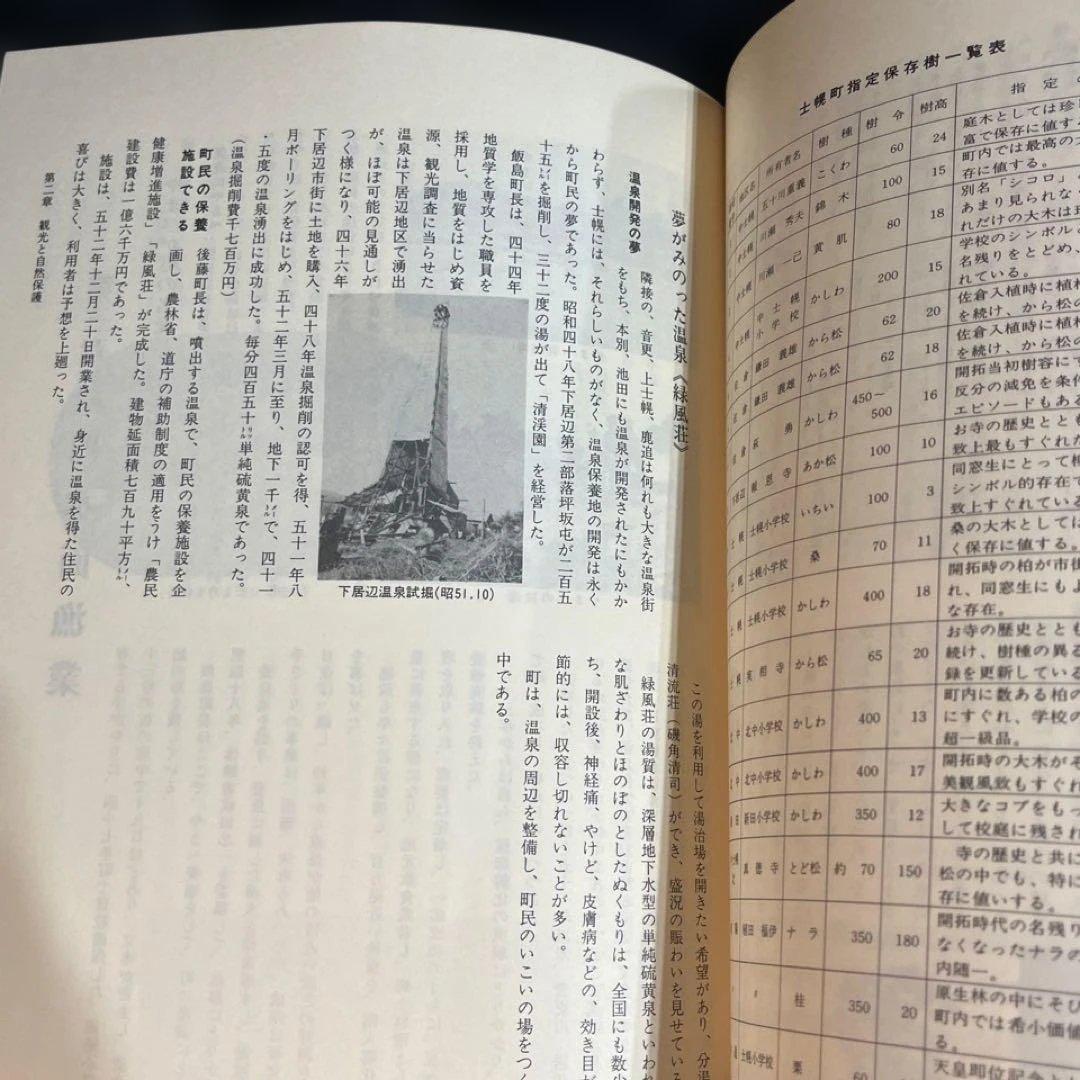 士幌町指定保存樹一覧表
所有者名 樹種 樹令 樹高 指定の
五十川重義 こくわ 60 24 庭木としては珍
富で保存に値す
川瀬 秀夫 錦木 100 15 町内では最高の
に値する。
川瀬 一己 黄肌 80 18 別名「シコロ」
あまり見られな
れだけの大木は
中士幌小学校 かしわ 200 15 学校のシンボル
名残りをとどめ、
れている。
鎌田 義雄 から松 62 20 佐倉入植時に植
を続け、から松の
鎌田 義雄 から松 62 18 佐倉入植時に植
を続け、から松の
勇 かしわ 450~500 16 開拓当初樹容に
反分の減免を条
エピソードもある
報恩寺 あか松 100 10 お寺の歴史ととも
致上最もすぐれた
士幌小学校 いちい 100 3 同窓生にとって
シンボル的存在で
致上すぐれている
士幌小学校 桑 70 11 桑の大木としては
く保存に値する。
士幌小学校 かしわ 400 18 開拓時の柏が市街
れ、同窓生にもよ
な存在。
士幌 実相寺 から松 65 20 お寺の歴史ととも
続け、樹種の異る
録を更新している
北中 北中小学校 かしわ 400 13 町内に数ある柏の
にすぐれ、学校の
超一級品。
北中 北中小学校 かしわ 400 17 開拓時の大木がそ
美観風致もすぐれ
新田小学校 かしわ 350 12 大きなコブをもっ
して校庭に残され
真徳寺 とど松 約70 150 寺の歴史と共に
松の中でも、特に
存に値いする。
植田 福伊 ナラ 350 180 開拓時代の名残り
なくなったナラの
内随一。
〃 桂 350 20 原生林の中にそび
町内では希小価値
る。
士幌小学校 栗 60 天皇即位記念とし
夢がみのった温泉《緑風荘》
温泉開発の夢
隣接の、音更、上士幌、鹿追は何れも大きな温泉街
をもち、本別、池田にも温泉が開発されたにもかか
わらず、士幌には、それらしいものがなく、温泉保養地の開発は永く
から町民の夢であった。昭和四十八年下居辺第二部落坪坂屯が二百五
十五㍍を掘削し、三十二度の湯が出て「清渓園」を経営した。
飯島町長は、四十四年
地質学を専攻した職員を
採用し、地質をはじめ資
源、観光調査に当らせた
温泉は下居辺地区で湧出
が、ほぼ可能の見通しが
つく様になり、四十六年
下居辺市街に土地を購入、四十八年温泉掘削の認可を得、五十一年八
月ボーリングをはじめ、五十二年三月に至り、地下一千㍍で、四十一
・五度の温泉湧出に成功した。毎分四百五十㍑単純硫黄泉であった。
(温泉掘削費千七百万円)
下居辺温泉試掘(昭51.10)
町民の保養
施設できる
後藤町長は、噴出する温泉で、町民の保養施設を企
画し、農林省、道庁の補助制度の適用をうけ「農民
健康増進施設」「緑風荘」が完成した。建物延面積七百九十平方㍍、
建設費は一億六千万円であった。
施設は、五十二年十二月二十日開業され、身近に温泉を得た住民の
喜びは大きく、利用者は予想を上廻った。
この湯を利用して湯治場を開きたい希望があり、分湯
清流荘(磯角清司)ができ、盛況の賑わいを見せている
緑風荘の湯質は、深層地下水型の単純硫黄泉といわれ
な肌ざわりとほのぼのとしたぬくもりは、全国にも数少
ち、開設後、神経痛、やけど、皮膚病などの、効き目が
節的には、収容し切れないことが多い。
町は、温泉の周辺を整備し、町民のいこいの場をつく
中である。
第二章 観光と自然保護